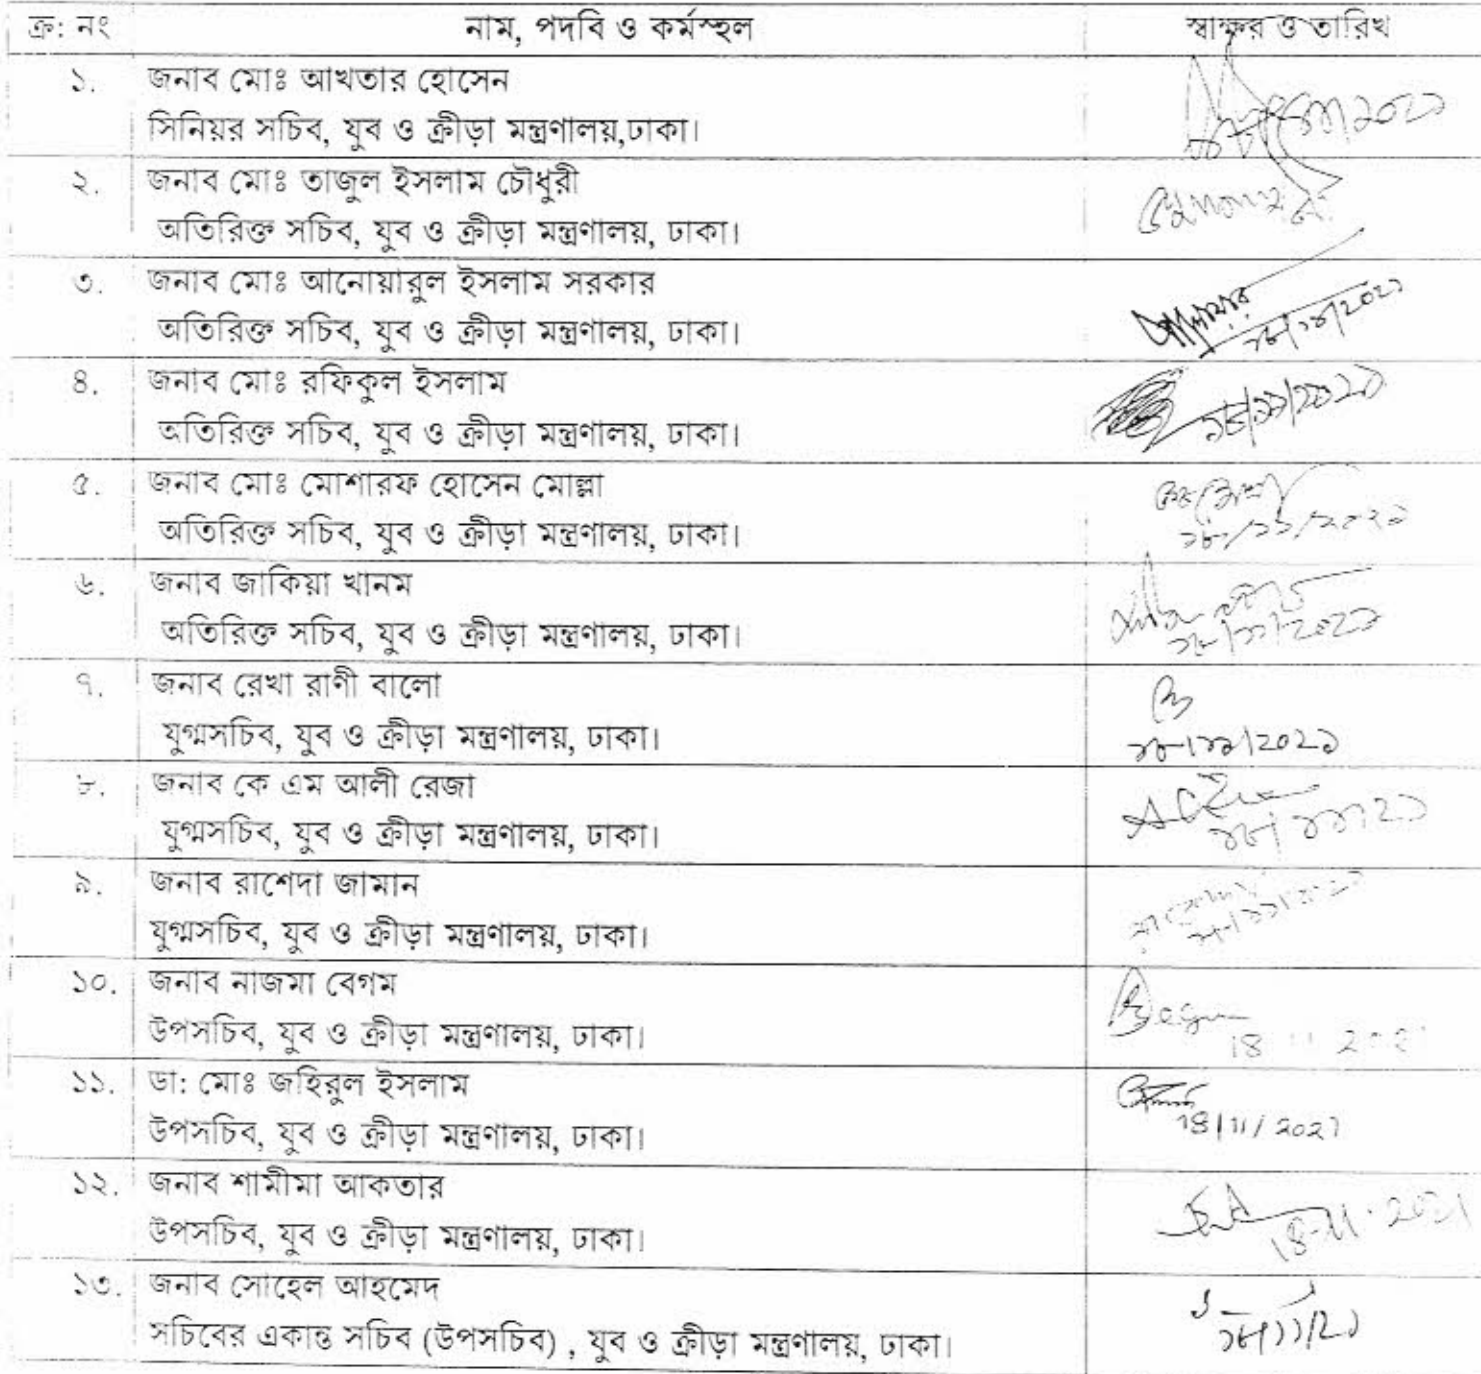 ক্র: নং নাম, পদবি ও কর্মস্হল স্বাক্ষর ও তারিখ
১. জনাব মোঃ আখতার হোসেন
সিনিয়র সচিব, যুব ও ক্রীড়া মন্ত্রণালয়,ঢাকা।
২. জনাব মোঃ তাজুল ইসলাম চৌধুরী
অতিরিক্ত সচিব, যুব ও ক্রীড়া মন্ত্রণালয়, ঢাকা।
৩. জনাব মোঃ আনোয়ারুল ইসলাম সরকার
অতিরিক্ত সচিব, যুব ও ক্রীড়া মন্ত্রণালয়, ঢাকা।
৪. জনাব মোঃ রফিকুল ইসলাম
অতিরিক্ত সচিব, যুব ও ক্রীড়া মন্ত্রণালয়, ঢাকা। ১৮/১১/২০২১
৫. জনাব মোঃ মোশারফ হোসেন মোল্লা
অতিরিক্ত সচিব, যুব ও ক্রীড়া মন্ত্রণালয়, ঢাকা। ১৮/১১/২০২১
৬. জনাব জাকিয়া খানম
অতিরিক্ত সচিব, যুব ও ক্রীড়া মন্ত্রণালয়, ঢাকা। ১৮/১১/২০২১
৭. জনাব রেখা রাণী বালো
যুগ্মসচিব, যুব ও ক্রীড়া মন্ত্রণালয়, ঢাকা। ১৮/১১/২০২১
৮. জনাব কে এম আলী রেজা
যুগ্মসচিব, যুব ও ক্রীড়া মন্ত্রণালয়, ঢাকা। ১৮/১১/২১
৯. জনাব রাশেদা জামান
যুগ্মসচিব, যুব ও ক্রীড়া মন্ত্রণালয়, ঢাকা।
১০. জনাব নাজমা বেগম Begum
উপসচিব, যুব ও ক্রীড়া মন্ত্রণালয়, ঢাকা। 18 11 2021
১১. ডা: মোঃ জহিরুল ইসলাম
উপসচিব, যুব ও ক্রীড়া মন্ত্রণালয়, ঢাকা। 18/11/2021
১২. জনাব শামীমা আকতার
উপসচিব, যুব ও ক্রীড়া মন্ত্রণালয়, ঢাকা। 18-11-2021
১৩. জনাব সোহেল আহমেদ
সচিবের একান্ত সচিব (উপসচিব) , যুব ও ক্রীড়া মন্ত্রণালয়, ঢাকা। ১৮/১১/২১